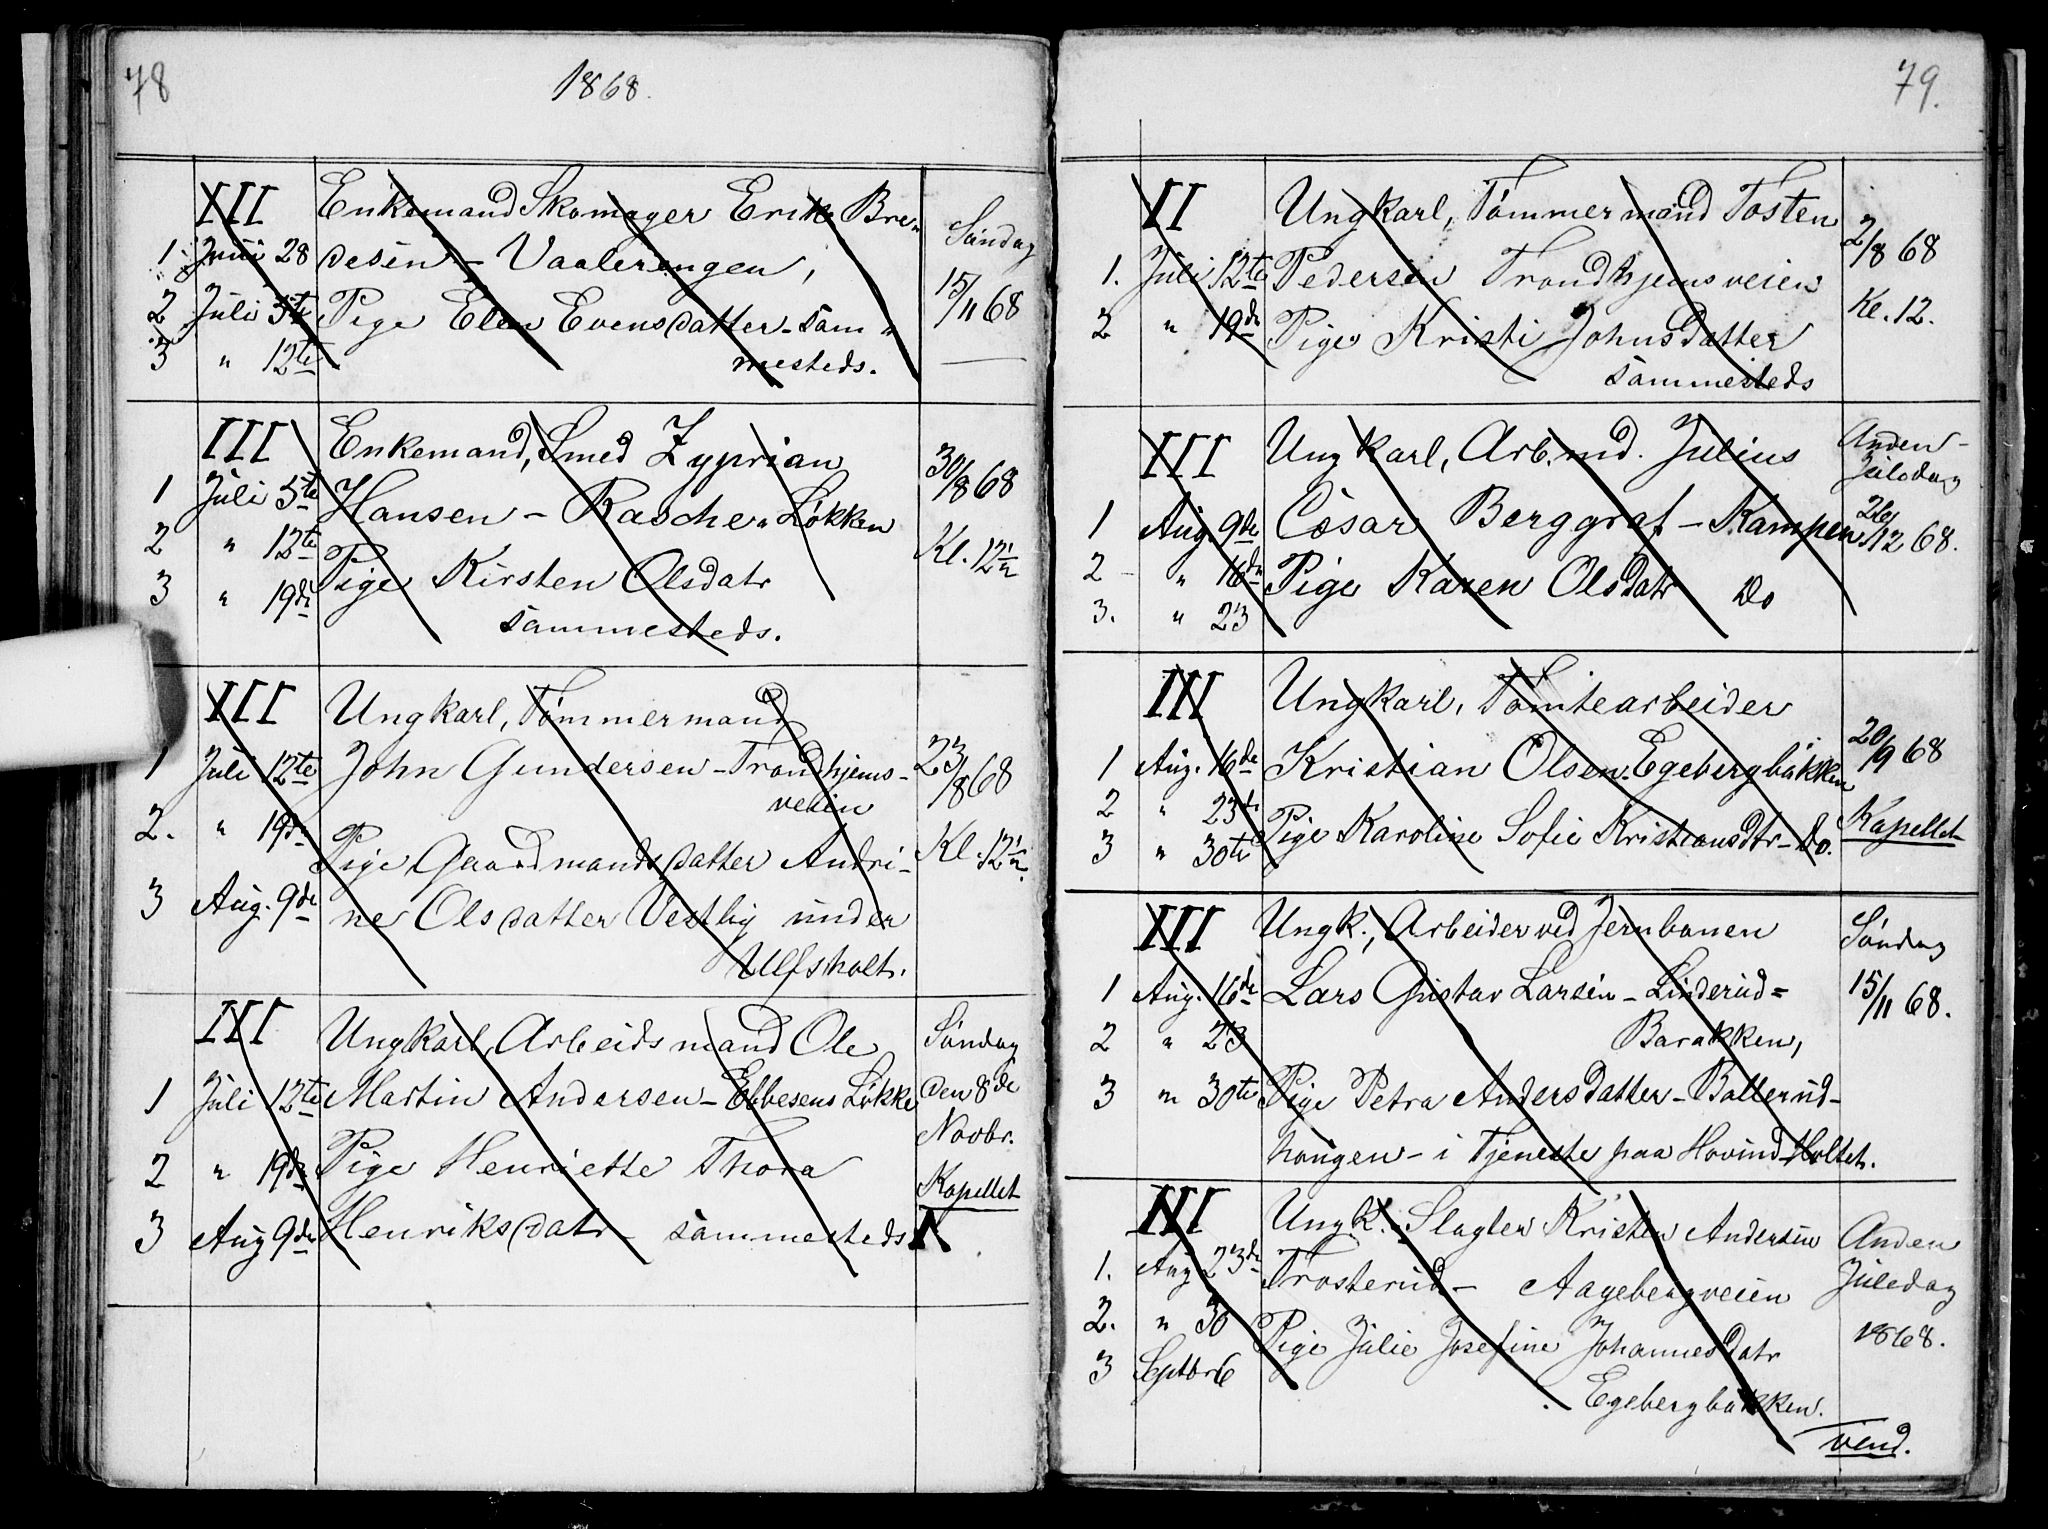 78
1868.
III
Enkemand Skomager Erik Bre-
1 Juni 28 desen - Vaalerengen,
2 Juli 5te Pige Elen Evensdatter - sam-
3 " 12te mesteds.
Søndag
15/11 68
III
Enkemand, Smed Zyprian
1 Juli 5te Hansen - Rasche Løkken
2 " 12te Pige Kirsten Olsdatr
3 " 19de sammesteds.
30/8 68
Kl. 12½
III
Ungkarl, Tømmermand
1 Juli 12te John Gundersen - Trondhjems-
veien
2. " 19de Pige Gaardmandsdatter Andri-
3 Aug. 9de ne Olsdatter Vestby under
Ulfsholt.
23/8 68
Kl. 12½.
III
Ungkarl, Arbeidsmand Ole
1 Juli 12te Martin Andersen - Ebbesens Løkke
2 " 19de Pige Henriette Thora
3 Aug 9de Henriksdatr - sammesteds
Søndag
den 8de
Novbr.
Kapellet
79.
II
Ungkarl, Tømmermand Tosten
1. Juli 12te Pedersen Trondhjemsveien
2 " 19de Pige Kristi Johnsdatter
sammesteds
2/8 68
Kl. 12.
III
Ungkarl, Arb.md. Julius
1 Aug. 9de Cæsar Berggraf - Kampen
2 " 16de Pige Karen Olsdatr Do
3. " 23
Anden
Juledag
26/12 68.
III
Ungkarl, Tomtearbeider
1 Aug. 16de Kristian Olsen - Egebergbakken
2 " 23de Pige Karoline Sofie Kristiansdtr - Do.
3 " 30te
20/9 68
Kapellet
III
Ungk., Arbeider ved Jernbanen
1 Aug. 16de Lars Gustav Larsen - Linderud=
2 " 23 Barakken,
3 " 30te Pige Petra Andersdatter - Ballerud-
haugen - i Tjeneste paa Hovind-Holtet.
Søndag
15/11 68.
III
Ungk. Slagter Kristen Andersen
1. Aug 23de Trosterud - Aagebergveien
2. " 30 Pige Julie Josefine Johannesdatr
3 Septbr 6 Egebergbakken.
Anden
Juledag
1868.
vend.